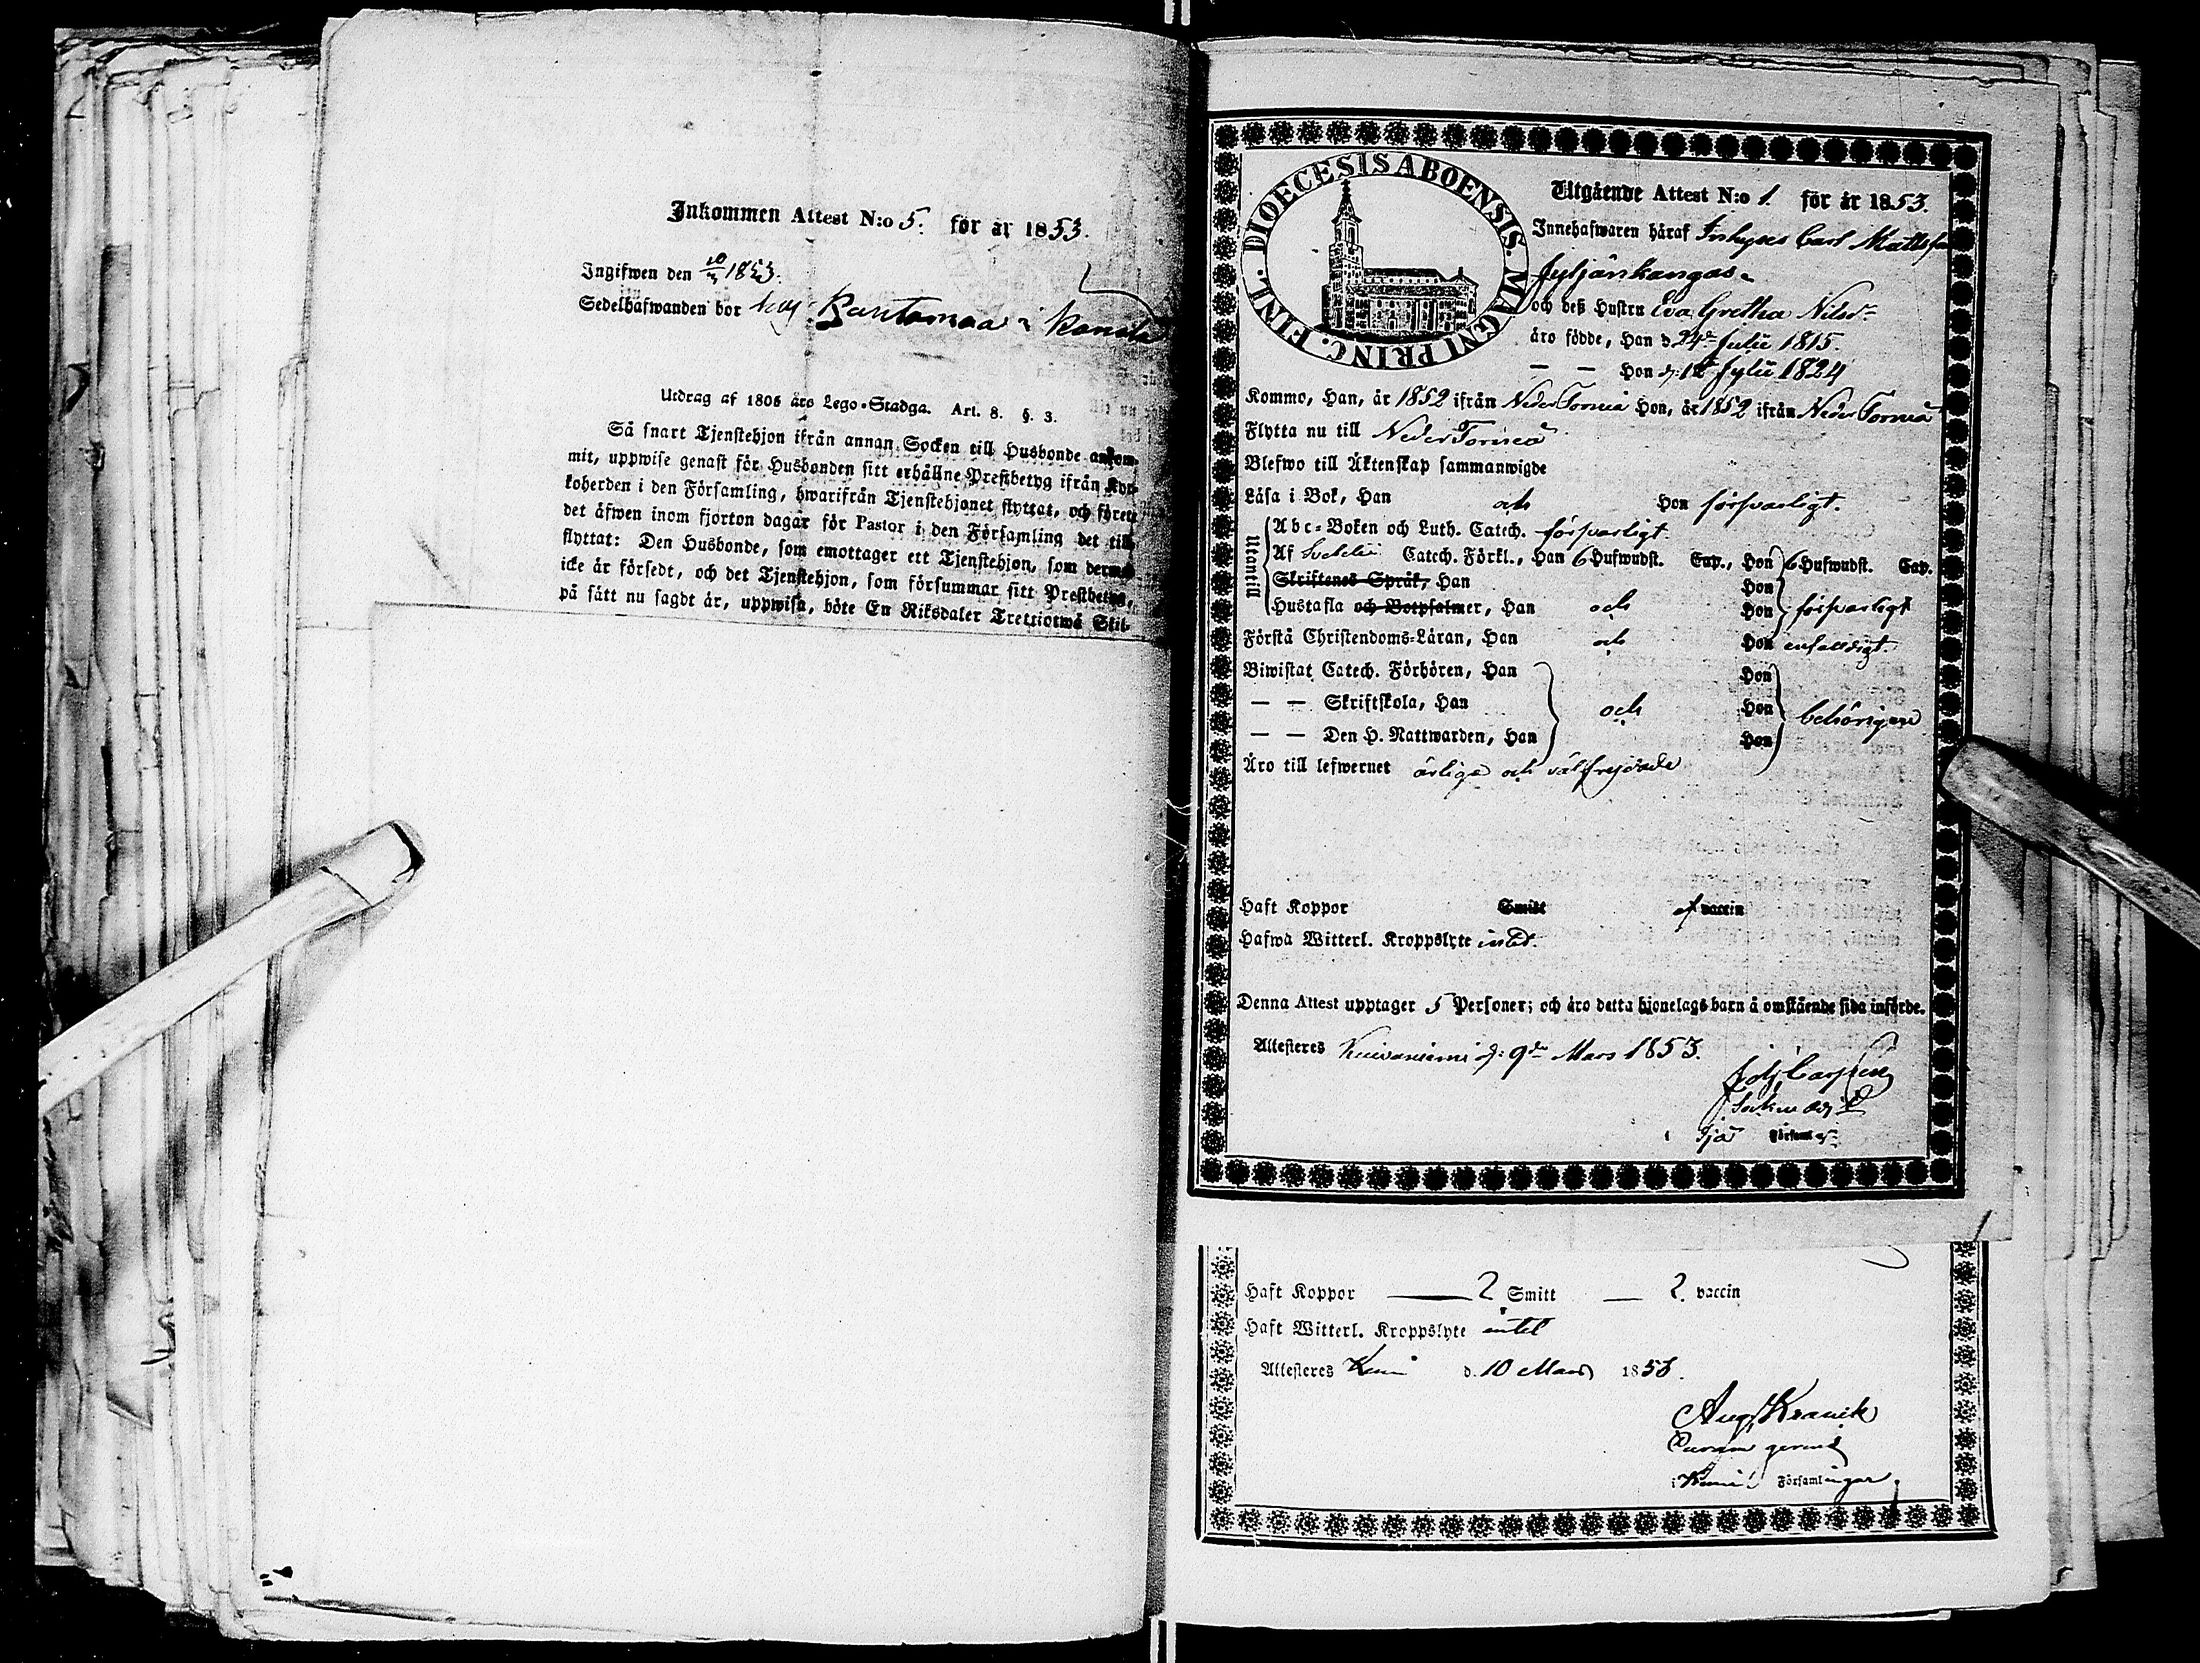 Inkommen Attest N:o 5. för år 1853.
Ingifwen den 1853.
Sedelhafwanden bor hos Rautamaa i
Utdrag af 1805 års Lego-Stadga. Art. 8. §. 3.
Så snart Tjenstehjon ifrån annan Socken till Husbonde ankom-
mit, uppwise genast för Husbonden sitt erhållne Prestbetyg ifrån Kyr-
koherden i den Församling, hwarifrån Tjenstehjonet flyttat, och förete
det äfwen inom fjorton dagar för Pastor i den Församling det till
flyttat: Den Husbonde, som emottager ett Tjenstehjon, som dermed
icke är försedt, och det Tjenstehjon, som försummar sitt Prestbetyg,
på sätt nu sagdt är, uppwisa, böte En Riksdaler Trettiotwå Skil-
DIOECESIS ABOENSIS. MAGNI PRINC. FINL.
Utgående Attest N:o 1. för år 1853.
Innehafwaren häraf Inhyses Carl Matts
Jyljänkangas
och deß Hustru Eva Gretha Nilsd
äro födde, Han d 24 Julii 1815.
— — Hon d: 12 Julii 1824
Kommo, Han, år 1852 ifrån Neder Torneå Hon, år 1852 ifrån Neder Torneå
Flytta nu till Neder Torneå
Blefwo till Äktenskap sammanwigde
Läsa i Bok, Han och Hon försvarligt.
Utantill
Abc-Boken och Luth. Catech. försvarligt
Af Svebelii Catech. Förkl., Han 6 Hufwudst. Cap., Hon 6 Hufwudst. Cap.
Skriftenes Språk, Han Hon
Hustafla och Botpsalmer, Han och Hon försvarligt
Förstå Christendoms-Läran, Han och Hon enfaldigt.
Biwistat Catech. Förhören, Han Hon
— — Skriftskola, Han och Hon behörigen
— — Den H. Nattwarden, Han Hon
Äro till lefwernet ärliga och välfrejdade
Haft Koppor Smitt af vaccin
Hafwa Witterl. Kroppslyte intet.
Denna Attest upptager 5 Personer; och äro detta hjonelags barn å omstående sida införde.
Attesteres Kuivaniemi d: 9de Mars 1853.
Joh. Carp
Socknead
i Ijo Församl
Haft Koppor — 2 Smitt — 2. vaccin
Haft Witterl. Kroppslyte intet
Attesteres Kemi d. 10 Mars 1853.
Aug Kranck
i Kemi Församlingar